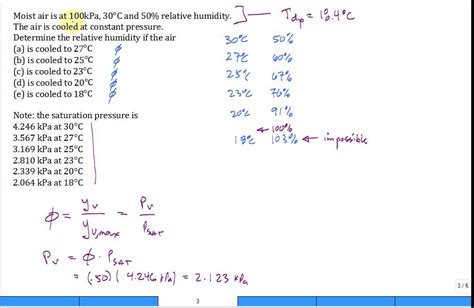 Moist air is at 100kPa, 30°C and 50% relative humidity.
The air is cooled at constant pressure.
Determine the relative humidity if the air
(a) is cooled to 27°C ϕ
(b) is cooled to 25°C ϕ
(c) is cooled to 23°C ϕ
(d) is cooled to 20°C ϕ
(e) is cooled to 18°C ϕ
Note: the saturation pressure is
4.246 kPa at 30°C
3.567 kPa at 27°C
3.169 kPa at 25°C
2.810 kPa at 23°C
2.339 kPa at 20°C
2.064 kPa at 18°C
ϕ = yv / yv,max = Pv / PSAT
Pv = ϕ · PSAT
= (.50)(4.246 kPa) = 2.123 kPa
→ Tdp = 18.4°C
30°C 50%
27°C 60%
25°C 67%
23°C 76%
20°C 91%
← 100%
18°C 103% ← impossible
3
3/6